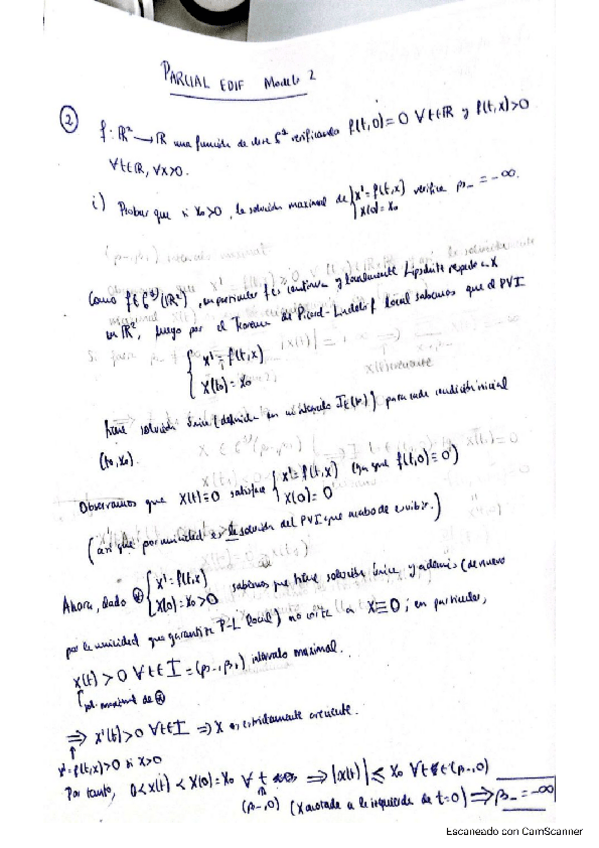 PARCIAL EDIF Modelo 2
② f: ℝ² → ℝ una función de clase C¹ verificando f(t,0) = 0 ∀t∈ℝ y f(t,x)>0
∀t∈ℝ, ∀x>0.
i) Probar que si x₀>0, la solución maximal de { x' = f(t,x) verifica β₋ = -∞.
x(0) = x₀
Como f∈C¹(ℝ²), en particular f es continua y localmente Lipschitz respecto x
en ℝ², luego por el Teorema de Picard-Lindelöf local sabemos que el PVI
{ x' = f(t,x)
x(t₀) = x₀
tiene solución única (definida en un intervalo ) para cada condición inicial
(t₀,x₀).
Observamos que x(t)≡0 satisface { x' = f(t,x) (ya que f(t,0)≡0)
x(0) = 0
(así que por unicidad es la solución del PVI que acabo de escribir.)
Ahora, dado ⊛ { x' = f(t,x) sabemos que tiene solución única, y además (de nuevo
x(0) = x₀>0
por la unicidad que garantiza P-L (local)) no corta a x≡0; en particular,
x(t) > 0 ∀t∈I = (β₋, β₊) intervalo maximal.
sol. maximal de ⊛
⇒ x'(t)>0 ∀t∈I ⇒ x es estrictamente creciente.
x' = f(t,x)>0 si x>0
Por tanto, 0<x(t) < x(0) = x₀ ∀ t ⇒ |x(t)| ≤ x₀ ∀t∈(β₋,0)
(β₋,0) (x acotada a la izquierda de t=0) ⇒ β₋ = -∞
Escaneado con CamScanner